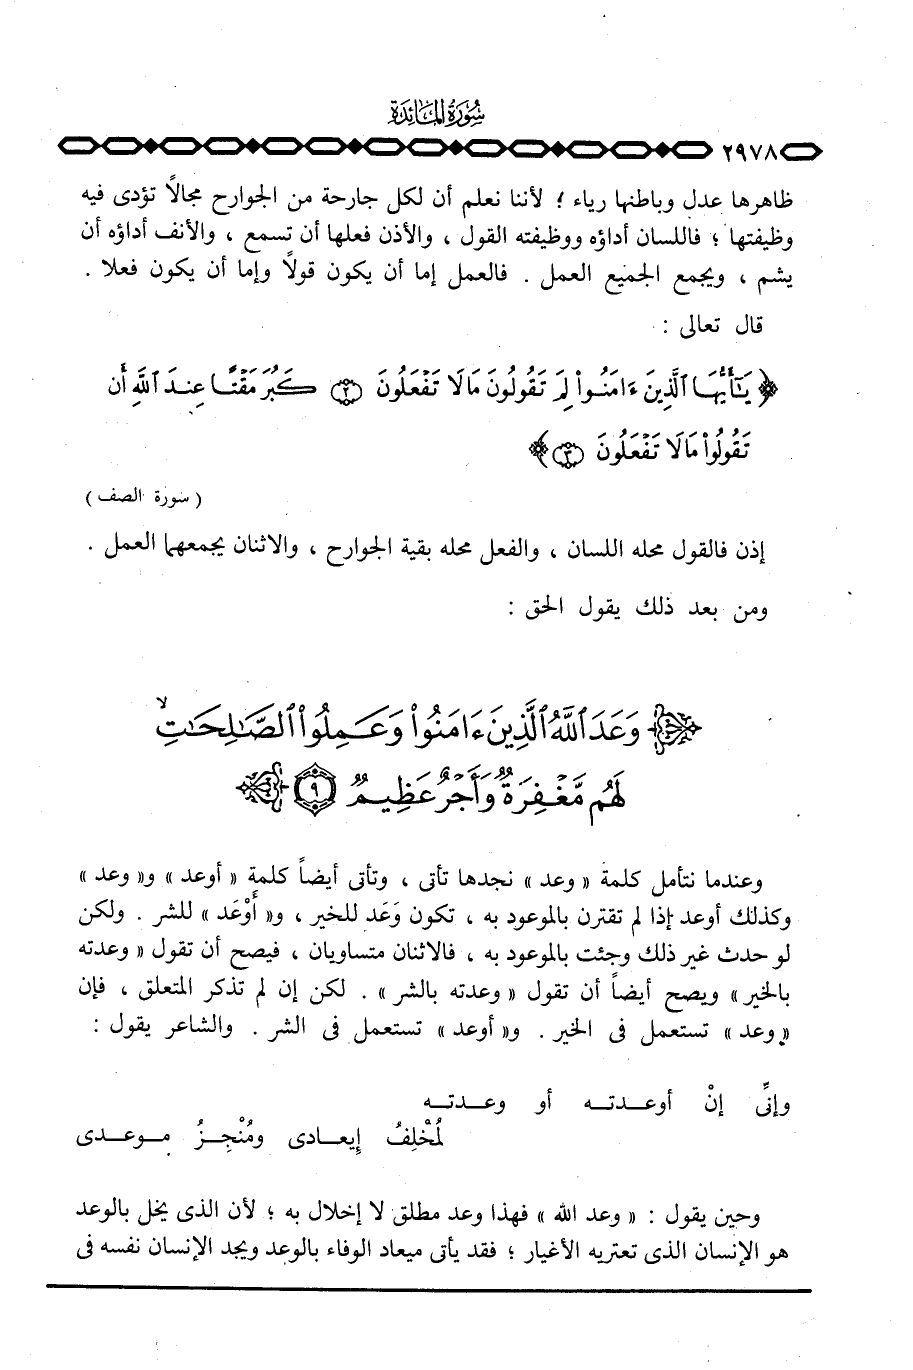 سورة المائدة
٢٩٧٨
ظاهرها عدل وباطنها رياء ؛ لأننا نعلم أن لكل جارحة من الجوارح مجالاً تؤدى فيه
وظيفتها ؛ فاللسان أداؤه ووظيفته القول ، والأذن فعلها أن تسمع ، والأنف أداؤه أن
يشم ، ويجمع الجميع العمل . فالعمل إما أن يكون قولاً وإما أن يكون فعلا .
قال تعالى :
﴿ يَٰٓأَيُّهَا ٱلَّذِينَ ءَامَنُوا۟ لِمَ تَقُولُونَ مَالَا تَفْعَلُونَ ۝٢ كَبُرَ مَقْتًا عِندَ ٱللَّهِ أَن
تَقُولُوا۟ مَالَا تَفْعَلُونَ ۝٣ ﴾
( سورة الصف )
إذن فالقول محله اللسان ، والفعل محله بقية الجوارح ، والاثنان يجمعهما العمل .
ومن بعد ذلك يقول الحق :
﴿ وَعَدَ ٱللَّهُ ٱلَّذِينَ ءَامَنُوا۟ وَعَمِلُوا۟ ٱلصَّٰلِحَٰتِۙ
لَهُم مَّغْفِرَةٌ وَأَجْرٌ عَظِيمٌ ۝٩ ﴾
وعندما نتأمل كلمة « وعد » نجدها تأتى ، وتأتى أيضاً كلمة « أوعد » و« وعد »
وكذلك أوعد إذا لم تقترن بالموعود به ، تكون وَعَد للخير ، و« أَوْعَد » للشر . ولكن
لو حدث غير ذلك وجئت بالموعود به ، فالاثنان متساويان ، فيصح أن تقول « وعدته
بالخير » ويصح أيضاً أن تقول « وعدته بالشر » . لكن إن لم تذكر المتعلق ، فإن
« وعد » تستعمل فى الخير . و« أوعد » تستعمل فى الشر . والشاعر يقول :
وإنِّى إنْ أوعـدتـه أو وعـدتـه
لمُخْلِفُ إيعـادى ومُنْجِـزُ مـوعـدى
وحين يقول : « وعد الله » فهذا وعد مطلق لا إخلال به ؛ لأن الذى يخل بالوعد
هو الإنسان الذى تعتريه الأغيار ؛ فقد يأتى ميعاد الوفاء بالوعد ويجد الإنسان نفسه فى